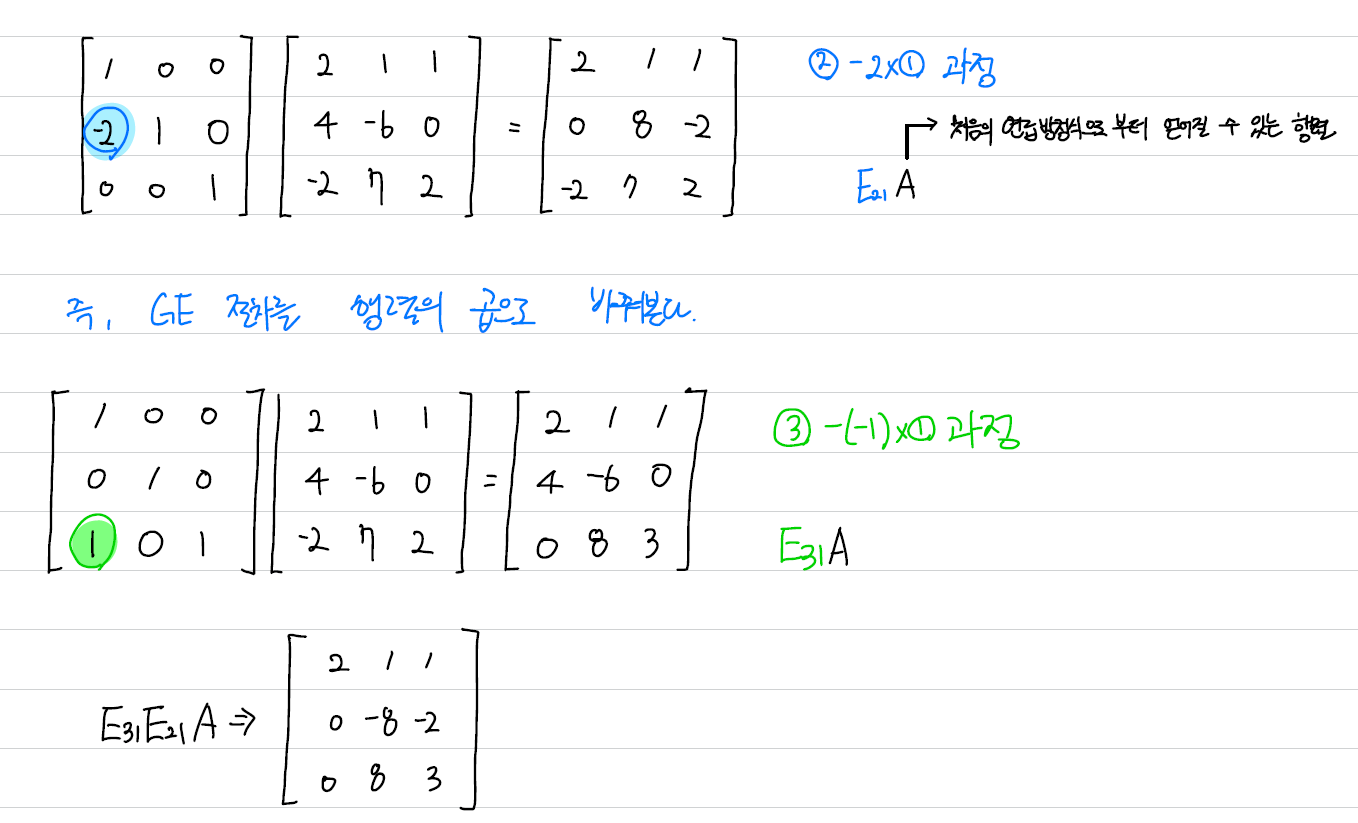 [1 0 0; -2 1 0; 0 0 1] [2 1 1; 4 -6 0; -2 7 2] = [2 1 1; 0 8 -2; -2 7 2] ② -2×① 과정
처음의 연립방정식으로 부터 얻어질 수 있는 행렬
E₂₁ A
즉, GE 절차를 행렬의 곱으로 바꿔본다.
[1 0 0; 0 1 0; 1 0 1] [2 1 1; 4 -6 0; -2 7 2] = [2 1 1; 4 -6 0; 0 8 3] ③ -(-1)×① 과정
E₃₁A
E₃₁E₂₁A ⇒ [2 1 1; 0 -8 -2; 0 8 3]